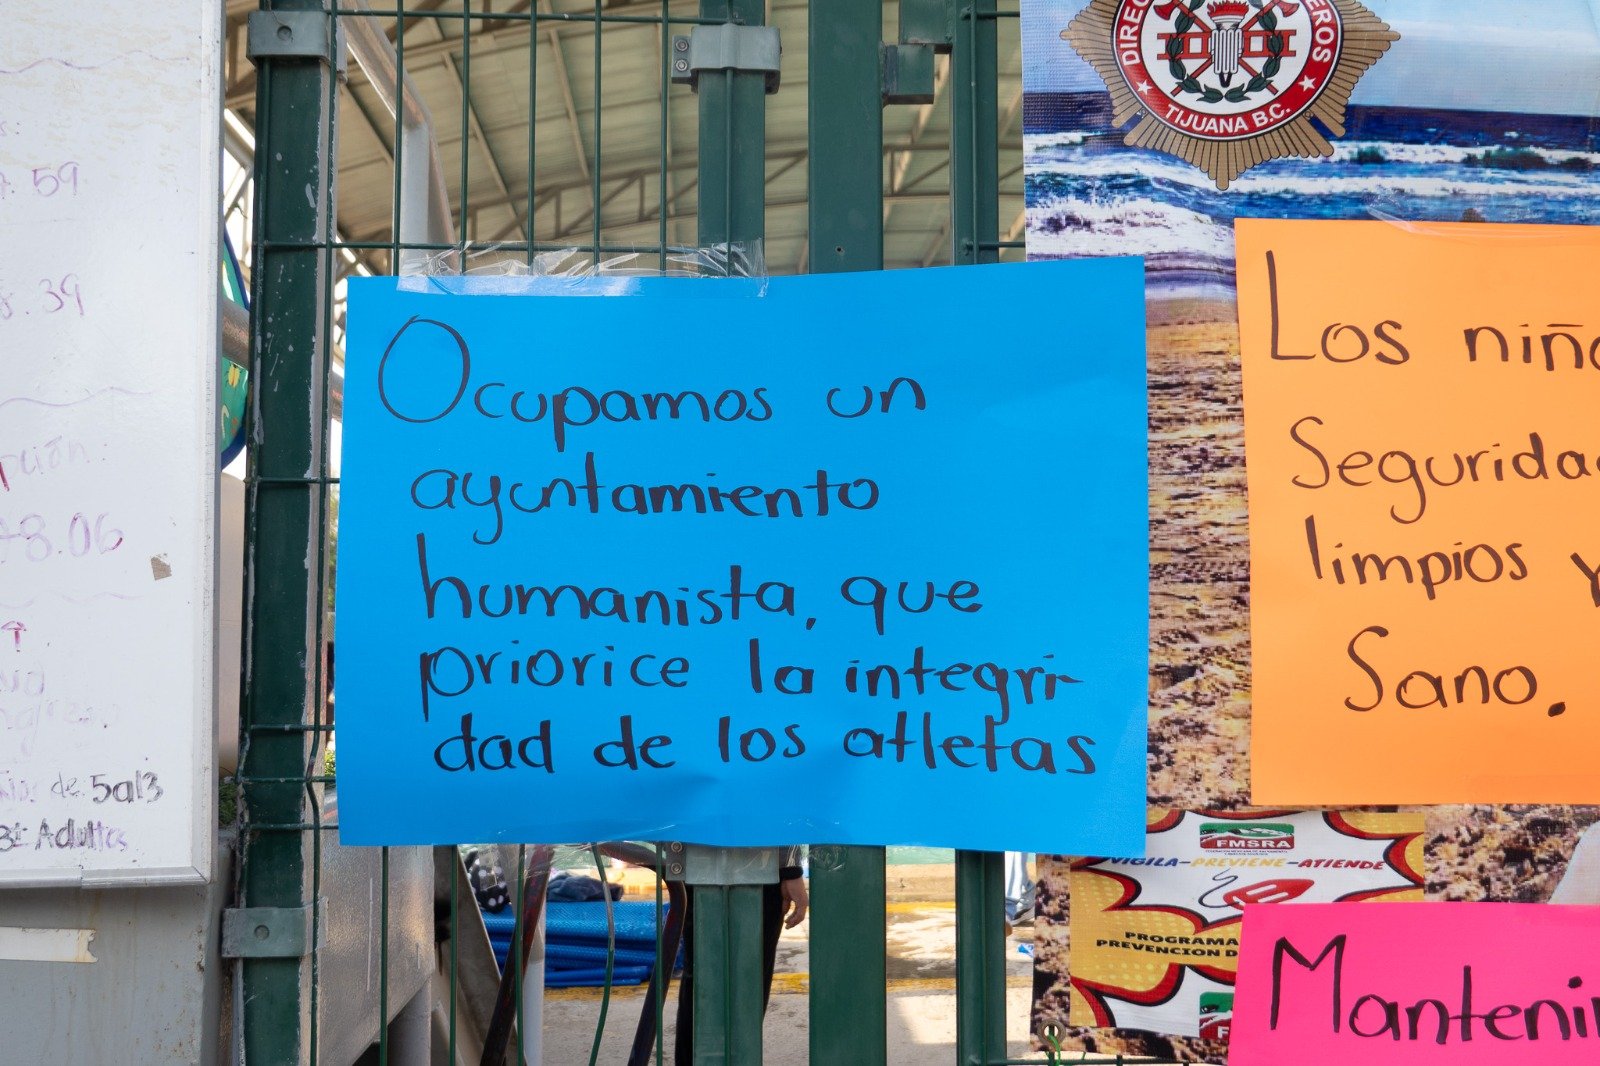 59
.39
8.06
de 5a13
Adultos
Ocupamos un
ayuntamiento
humanista, que
priorice la integri-
dad de los atletas
TIJUANA B.C.
Los
limpios y
Sano.
FMSRA
VIGILA-PREVIENE-ATIENDE
PROGRAMA
PREVENCION D